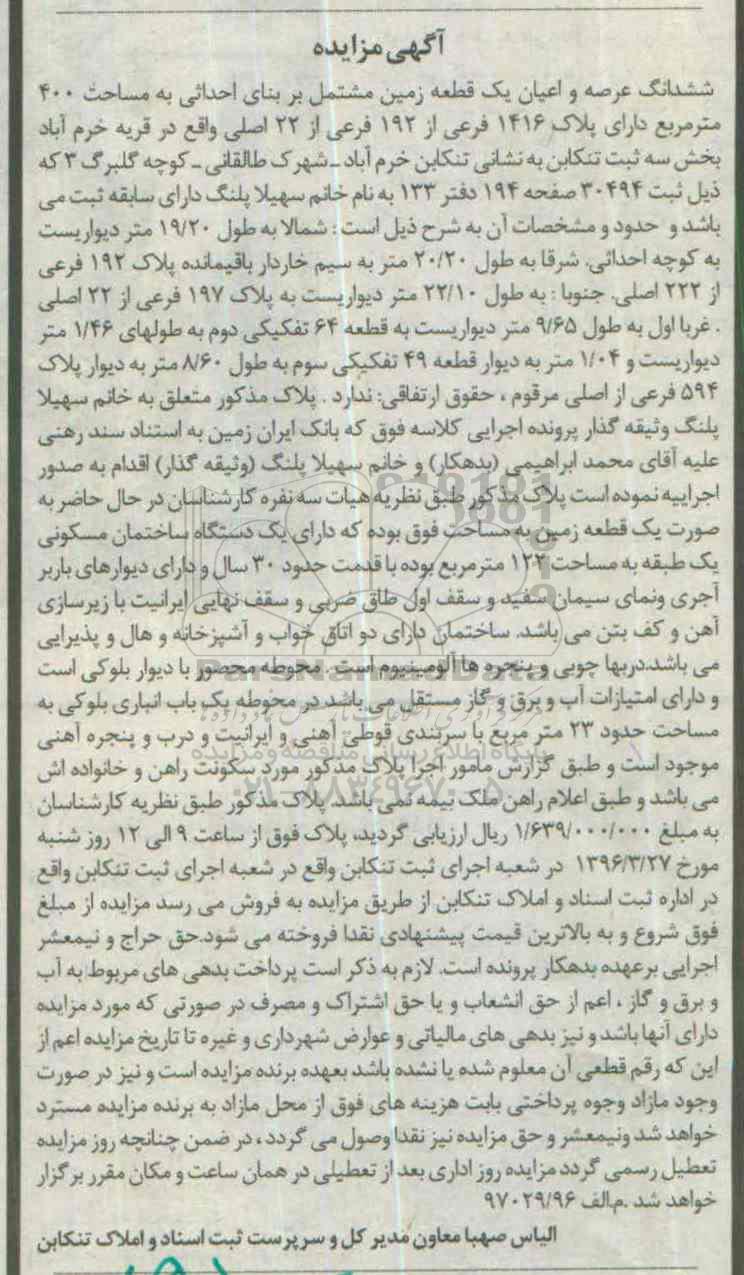 آگهی مزایده
ششدانگ عرصه و اعیان یک قطعه زمین مشتمل بر بنای احداثی به مساحت ۴۰۰
مترمربع دارای پلاک ۱۴۱۶ فرعی از ۱۹۲ فرعی از ۲۲ اصلی واقع در قریه خرم آباد
بخش سه ثبت تنکابن به نشانی تنکابن خرم آباد ـ شهرک طالقانی ـ کوچه گلبرگ ۳ که
ذیل ثبت ۳۰۴۹۴ صفحه ۱۹۴ دفتر ۱۳۳ به نام خانم سهیلا پلنگ دارای سابقه ثبت می
باشد و حدود و مشخصات آن به شرح ذیل است : شمالا به طول ۱۹/۲۰ متر دیواریست
به کوچه احداثی. شرقا به طول ۲۰/۲۰ متر به سیم خاردار باقیمانده پلاک ۱۹۲ فرعی
از ۲۲۲ اصلی. جنوبا : به طول ۲۲/۱۰ متر دیواریست به پلاک ۱۹۷ فرعی از ۲۲ اصلی
. غربا اول به طول ۹/۶۵ متر دیواریست به قطعه ۶۴ تفکیکی دوم به طولهای ۱/۴۶ متر
دیواریست و ۱/۰۴ متر به دیوار قطعه ۴۹ تفکیکی سوم به طول ۸/۶۰ متر به دیوار پلاک
۵۹۴ فرعی از اصلی مرقوم ، حقوق ارتفاقی: ندارد . پلاک مذکور متعلق به خانم سهیلا
پلنگ وثیقه گذار پرونده اجرایی کلاسه فوق که بانک ایران زمین به استناد سند رهنی
علیه آقای محمد ابراهیمی (بدهکار) و خانم سهیلا پلنگ (وثیقه گذار) اقدام به صدور
اجراییه نموده است پلاک مذکور طبق نظریه هیات سه نفره کارشناسان در حال حاضر به
صورت یک قطعه زمین به مساحت فوق بوده که دارای یک دستگاه ساختمان مسکونی
یک طبقه به مساحت ۱۲۲ مترمربع بوده با قدمت حدود ۳۰ سال و دارای دیوارهای باربر
آجری ونمای سیمان سفید و سقف اول طاق ضربی و سقف نهایی ایرانیت با زیرسازی
آهن و کف بتن می باشد. ساختمان دارای دو اتاق خواب و آشپزخانه و هال و پذیرایی
می باشد.دربها چوبی و پنجره ها آلومینیوم است . محوطه محصور با دیوار بلوکی است
و دارای امتیازات آب و برق و گاز مستقل می باشد در محوطه یک باب انباری بلوکی به
مساحت حدود ۲۳ متر مربع با سربندی قوطی آهنی و ایرانیت و درب و پنجره آهنی
موجود است و طبق گزارش مامور اجرا پلاک مذکور مورد سکونت راهن و خانواده اش
می باشد و طبق اعلام راهن ملک بیمه نمی باشد. پلاک مذکور طبق نظریه کارشناسان
به مبلغ ۱/۶۳۹/۰۰۰/۰۰۰ ریال ارزیابی گردید، پلاک فوق از ساعت ۹ الی ۱۲ روز شنبه
مورخ ۱۳۹۶/۳/۲۷ در شعبه اجرای ثبت تنکابن واقع در شعبه اجرای ثبت تنکابن واقع
در اداره ثبت اسناد و املاک تنکابن از طریق مزایده به فروش می رسد مزایده از مبلغ
فوق شروع و به بالاترین قیمت پیشنهادی نقدا فروخته می شود.حق حراج و نیمعشر
اجرایی برعهده بدهکار پرونده است. لازم به ذکر است پرداخت بدهی های مربوط به آب
و برق و گاز ، اعم از حق انشعاب و یا حق اشتراک و مصرف در صورتی که مورد مزایده
دارای آنها باشد و نیز بدهی های مالیاتی و عوارض شهرداری و غیره تا تاریخ مزایده اعم از
این که رقم قطعی آن معلوم شده یا نشده باشد بعهده برنده مزایده است و نیز در صورت
وجود مازاد وجوه پرداختی بابت هزینه های فوق از محل مازاد به برنده مزایده مسترد
خواهد شد ونیمعشر و حق مزایده نیز نقدا وصول می گردد ، در ضمن چنانچه روز مزایده
تعطیل رسمی گردد مزایده روز اداری بعد از تعطیلی در همان ساعت و مکان مقرر برگزار
خواهد شد .م.الف ۹۷۰۲۹/۹۶
الیاس صهبا معاون مدیر کل و سرپرست ثبت اسناد و املاک تنکابن